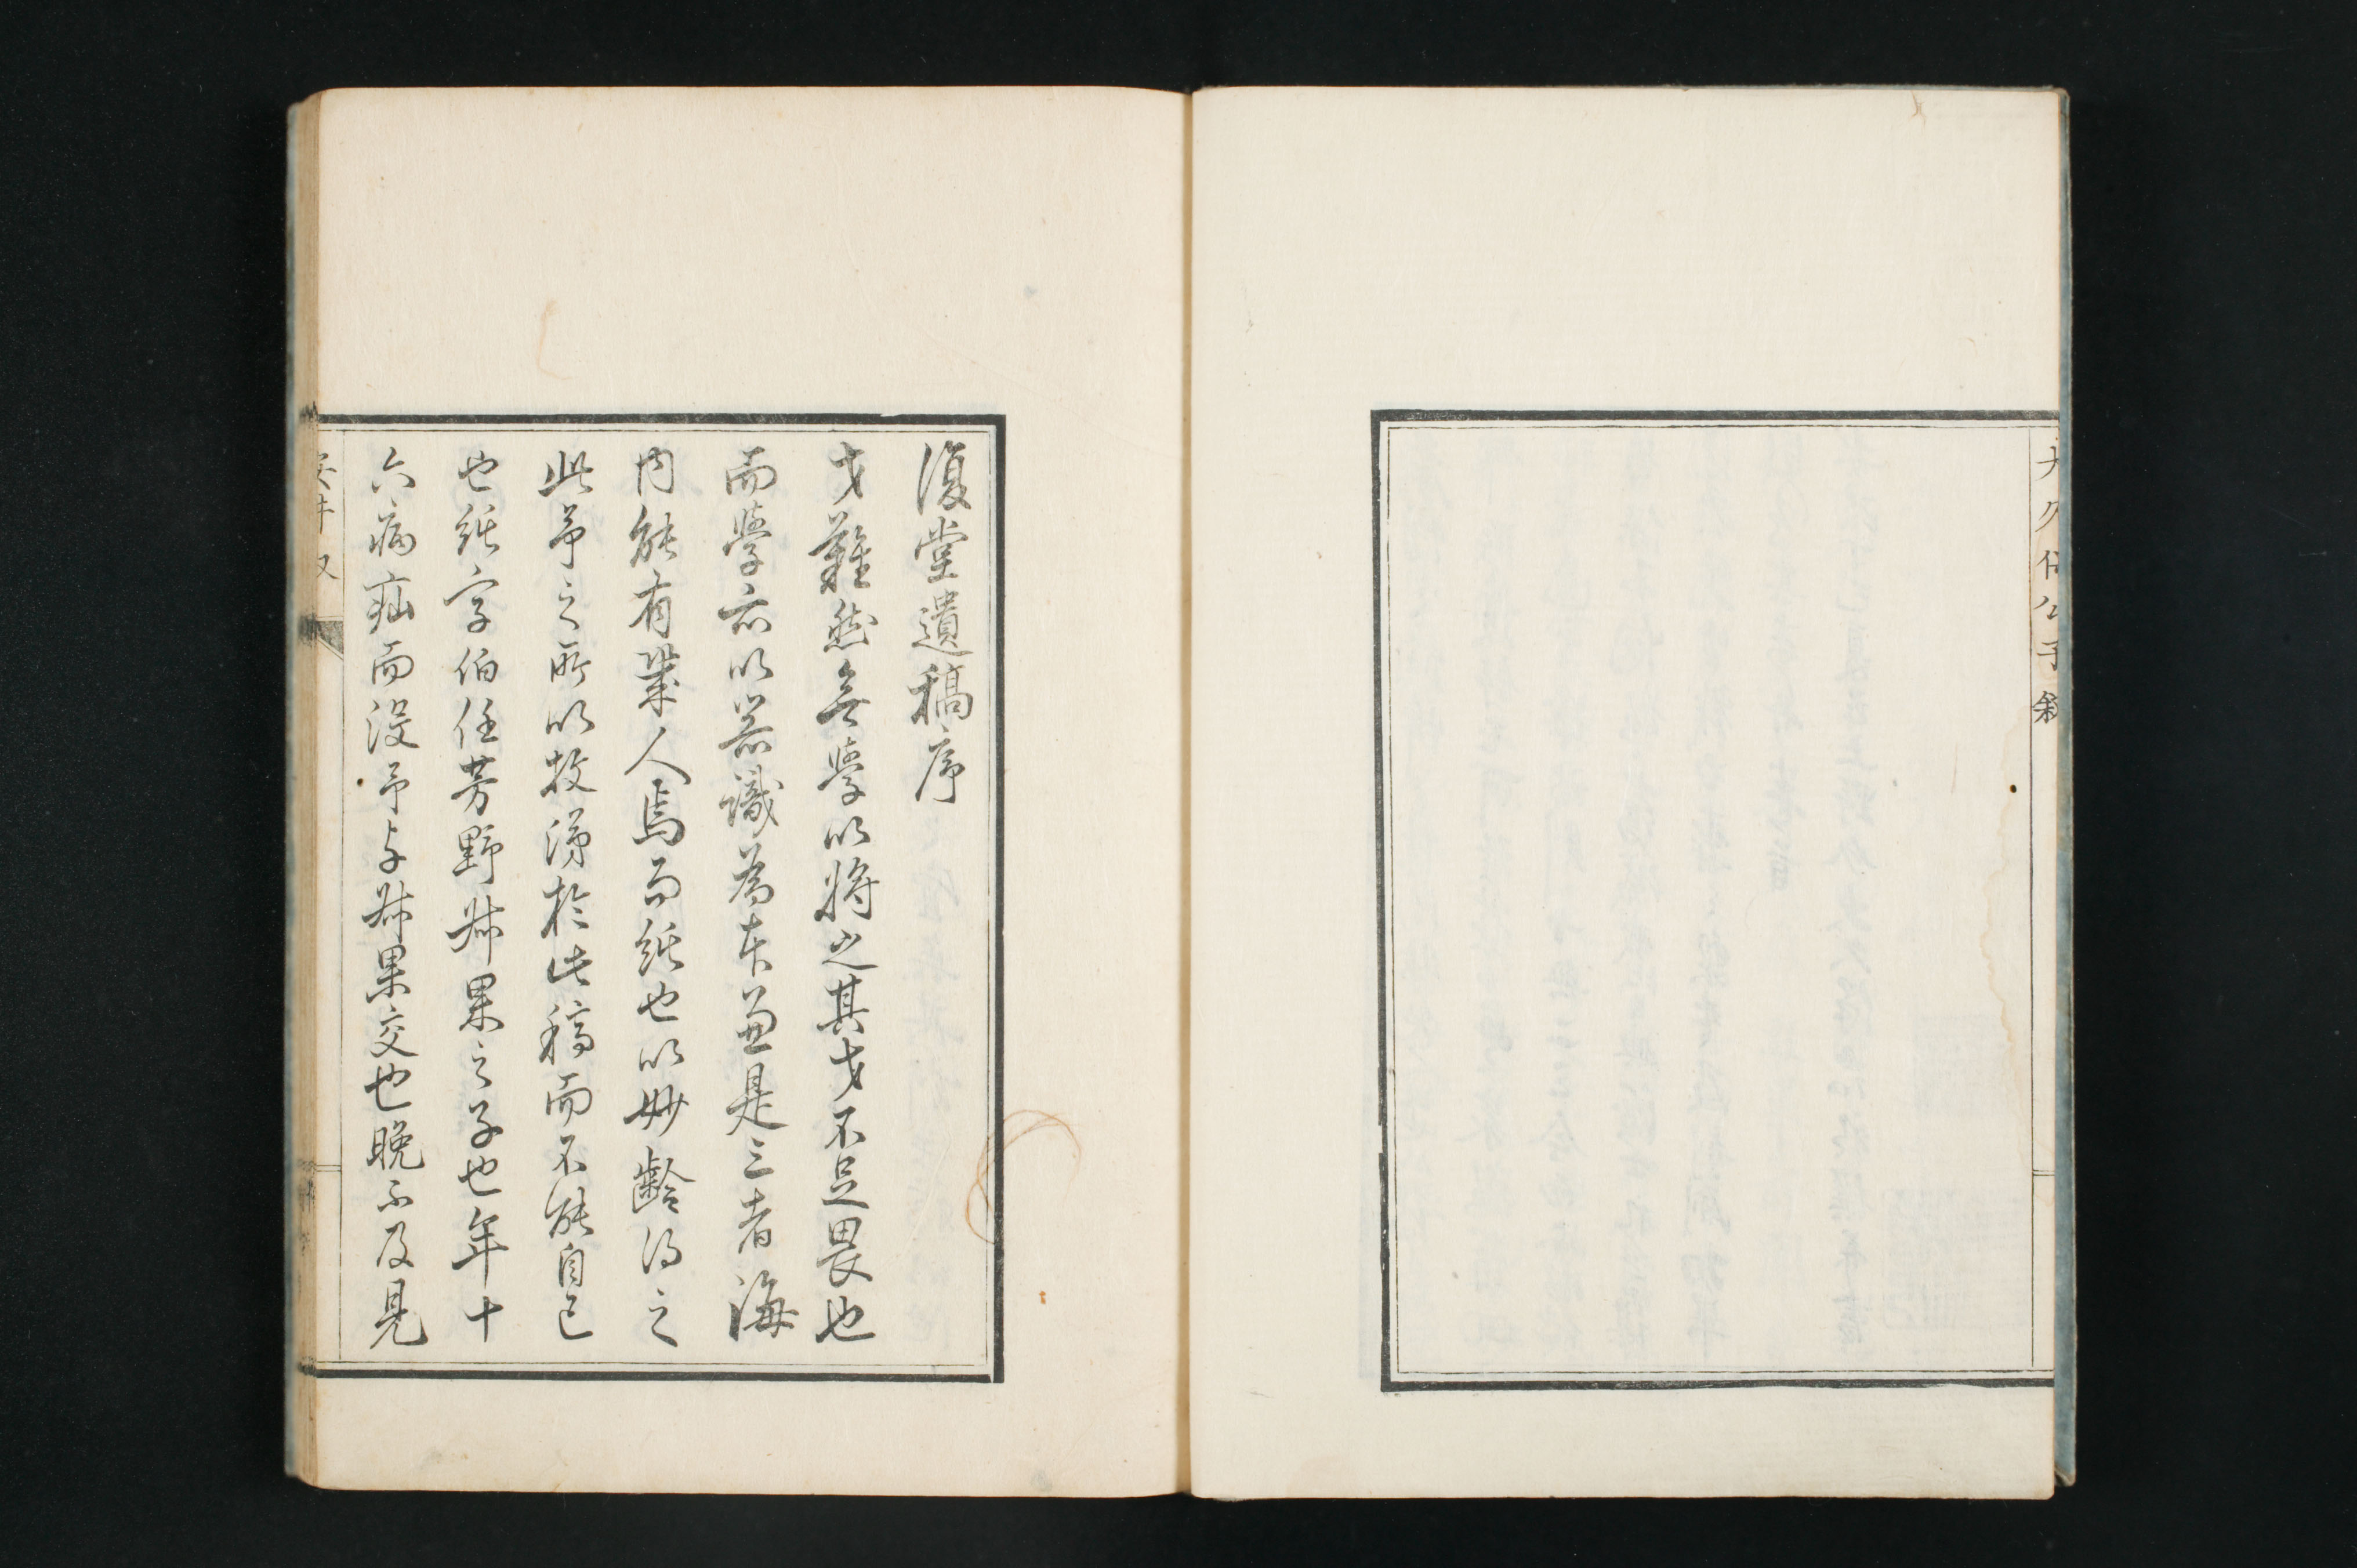 大久保公子叙
復堂遺稿序
才難然無學以將之其才不足畏也
而學亦以器識為本兼是三者海
内能有幾人焉而紙也以妙齡得之
此予之所以投涕於此稿而不能自已
也紙字伯任芳野叔果之子也年十
六病疝而没予与叔果交也晚不及見
安井叙